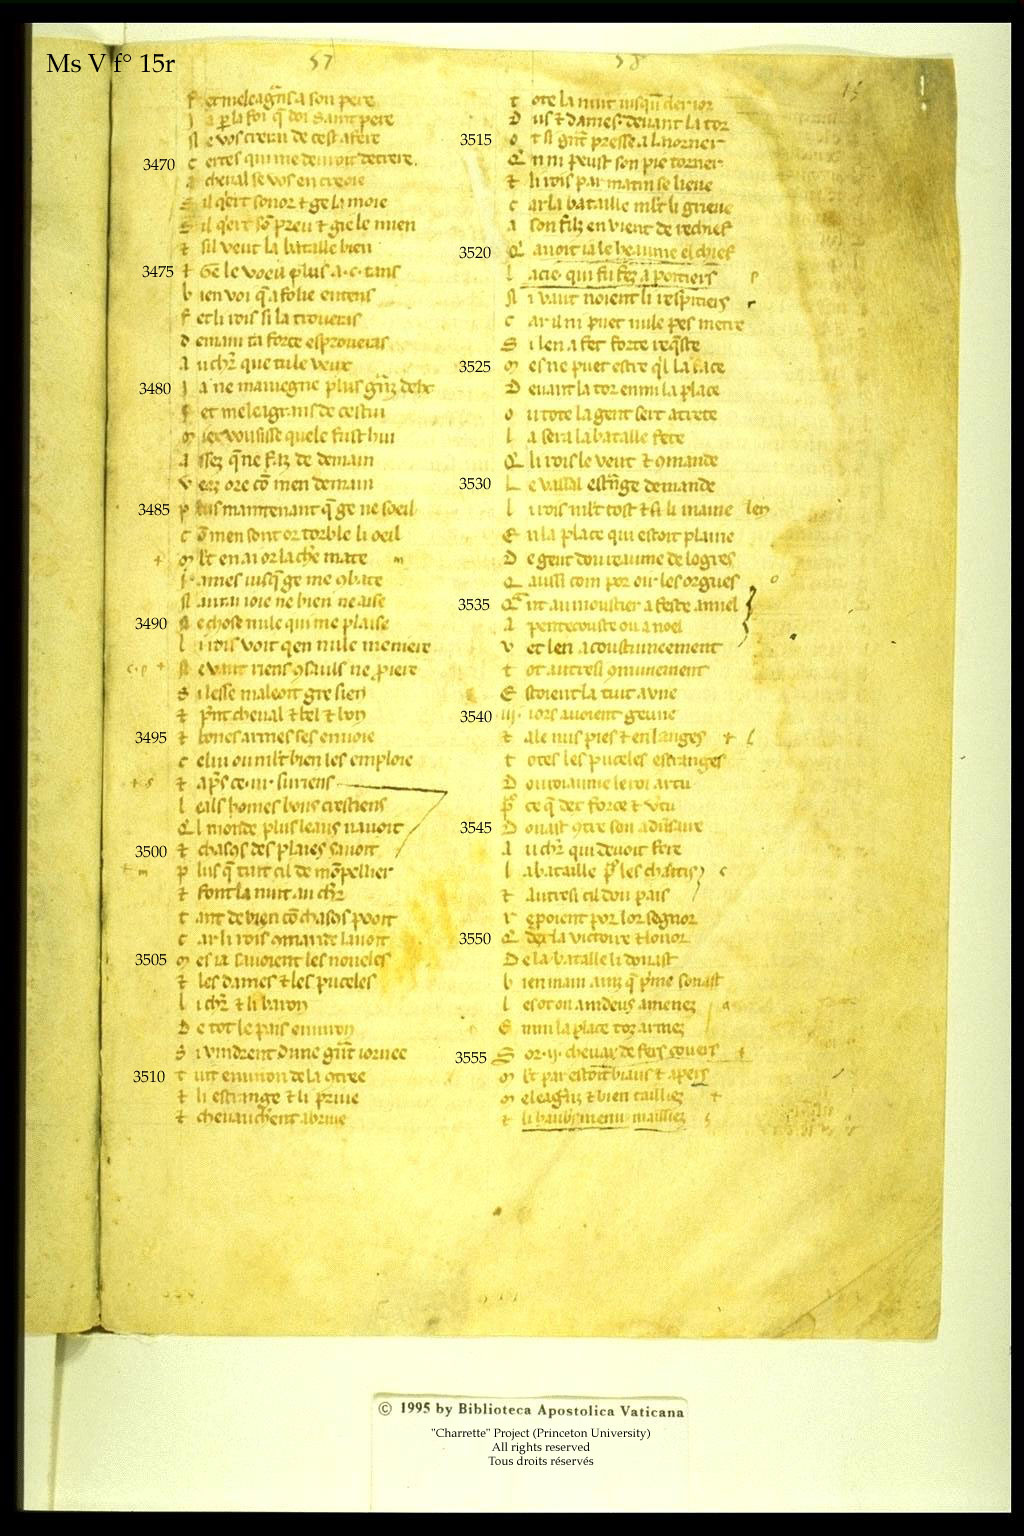 Ms V f° 15r
57
58
15
f et meleagñs a son pere
J a p̱ la foi q̃ doi saint pere
N e vos creirai de cest afere
3470 c ertes qui me devroit detrere.
a cheval se vos en creoie
S il q̃ert sonor ⁊ ge la moie
S il q̃ert sõ preu ⁊ gie le mien
⁊ sil veut la bataille bien
3475 ⁊ Ge le voeil plus .a.c. tans
b ien voi q̃ a folie entens
f et li rois si la troveras
D emain ta force esproveras
A u chr̃ que tu le veux
3480 J a ne maviegne plus
f et meleagrans de cestui
m iex vousisse quele fust hui
a ssez q̃ ne faz de demain
v eez ore cõ men demain
3485 p lus maintenant q̃ ge ne soeil
c õ men sont or torble li oeil
m lt en ai or la chr̃e mate m
J ames jusq̃ ge me 9bate
N aurai joie ne bien ne aise
3490 N e chose nule qui me plaise
l i rois voit qen nule meniere
N e vaut riens 9sauls ne p̱iere
S i lesse maleoit gre sien
⁊ p̃nt cheval ⁊ bel ⁊ bon
3495 ⁊ bones armes ses envoie
c elui ou mlt bien les emploie
⁊ ap̃s ce .iii. suriens
l eals homes bons crestiens
Q l monde plus leaus navoit
3500 ⁊ chasos des plaies savoit
p lus q̃ tuit cil de mõpellier
⁊ font la nuit au chr̃
t ant de bien cõ chasos poort
c ar li rois 9mande lavoit
3505 m es ia savoient les noveles
⁊ les dames ⁊ les puceles
l i chr̃ ⁊ li baron
D e tot le pais environ
S i vindrent dune g̃nt iornee
3510 t uit environ de la 9tree
⁊ li estrange ⁊ li prive
⁊ chevauchent abrive
t ote la nuit jusqu der ior
D us ⁊ dames devant la tor
3515 o t si g̃nt presse a laiorner
Q n ni peust son pie torner
⁊ li rois par matin se lieve
c ar la bataille mlt li grieve
a son filz en vient de rechief
3520 Q avoit ia le heaume el chief
l acie qui fu fez a poitiers
N i vaut noient li respitiers
c ar il ni puet nule pes metre
S i len a fet forte req̃ste
3525 m es ne puet estre ql la face
D evant la tor enmi la place
o u tote la gent sert atrete
l a sera la bataille fete
Q li rois le veut ⁊ 9mande
3530 L e vassal est̃nge demande
l i rois mlt tost ⁊ si li maine len
E n la place qui estoit plaine
D e gent dou reaume de logres
Q aussi com por oir les orgues
3535 Q vnt au moustier a feste anuel
A pentecouste ou a noel
v et len acoustumeement
t ot autresi 9munement
E stoient la tuit aune
3540 iii. iors avoient geune
⁊ ale nus pies ⁊ en langes
t otes les puceles estranges
D ou roiaume le roi artu
p̃ ce q̃ dex force ⁊ v̾tu
3545 D onast 9tre son adṽsaire
A u chr̃ qui devoit fere
l a bataille p̃ les chaitis
⁊ autresi cil dou pais
r epoient por lor segnor
3550 Q dex la victoire ⁊ lonor
D e la bataille li donast
b ien main ainz q̃ p̃me sonast
l es ot on amdeus amenez
E nmi la place toz armez
3555 S or .ii. chevax de fers covers
m lt par estoit biaus ⁊ apers
m eleag̃nz ⁊ bien tailliez
⁊ li haubs menu mailliez
© 1995 by Biblioteca Apostolica Vaticana
"Charrette" Project (Princeton University)
All rights reserved
Tous droits réservés